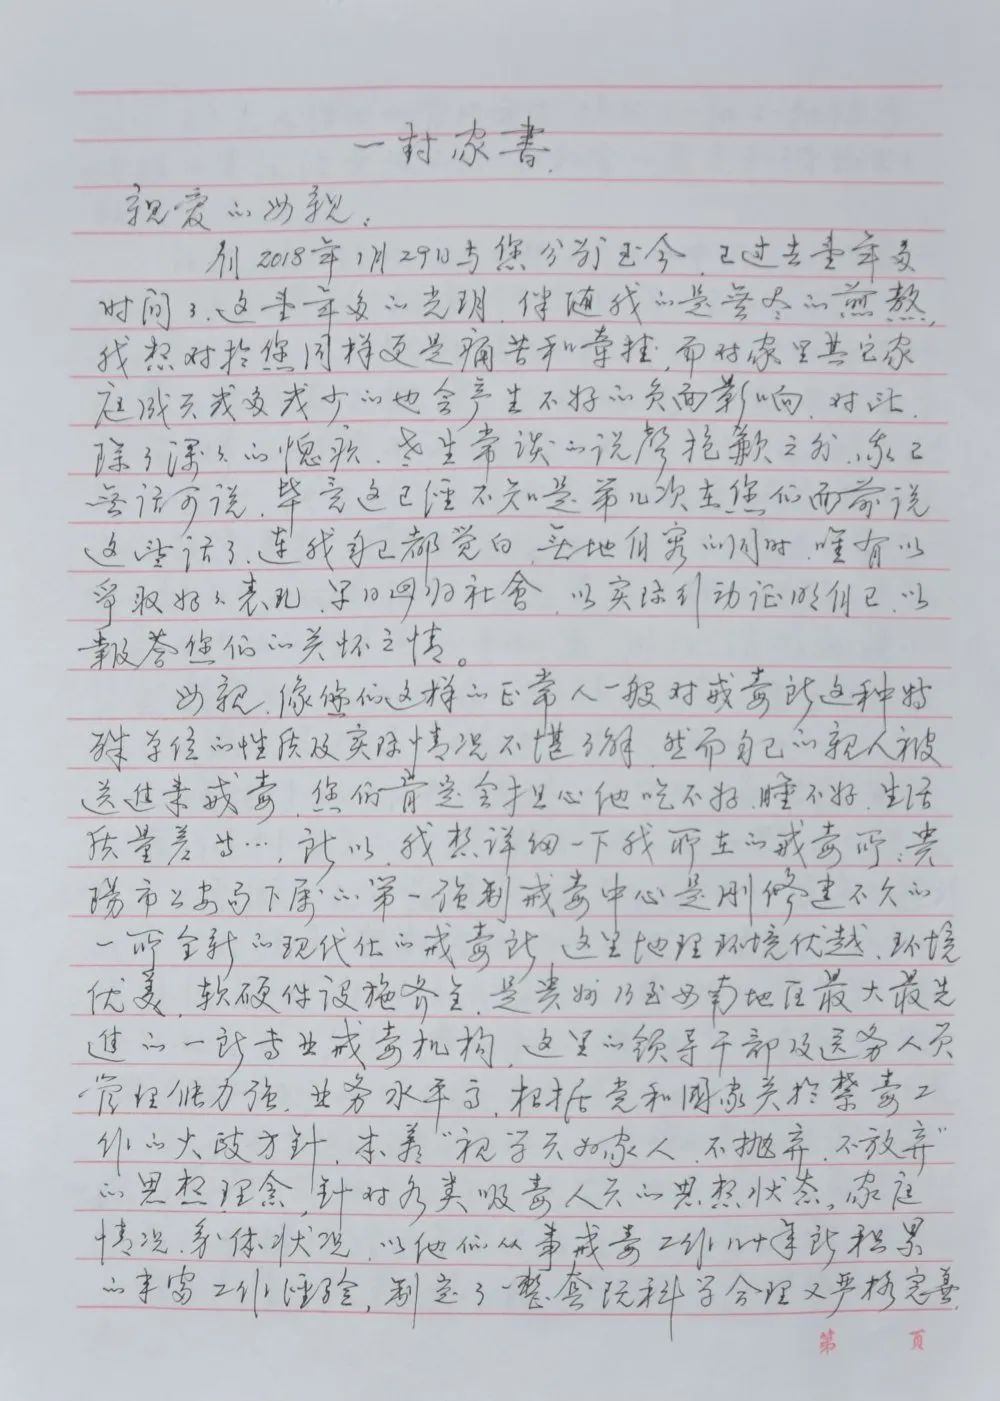 一封家書
親爱的母親：
自2018年1月29日与您分别至今，已过去壹年多
时间了，这壹年多的光阴，伴随我的是無尽的煎熬，
我想对於您同样更是痛苦和牵挂，而对家里其它家
庭成员或多或少的也会产生不好的负面影响，对此，
除了深深的愧疚，老生常谈的说聲抱歉之外，我已
無话可说，毕竟这已經不知是第几次在您们面前说
这些话了，连我自己都觉的無地自容的同时，唯有以
爭取好好表现，早日回归社會，以实际行动证明自己，以
報荅您们的关怀之情。
母親，像您们这样的正常人一般对戒毒所这种特
殊单位的性质及实际情况不堪了解，然而自己的親人被
送進来戒毒，您们肯定会担心他吃不好，睡不好，生活
质量差等…，所以，我想详细一下我所在的戒毒所：贵
陽市公安局下属的第一强制戒毒中心是刚修建不久的
一所全新的现代化的戒毒所，这里地理环境优越，环境
优美，软硬件设施齐全，是贵州乃至西南地区最大最先
進的一所专业戒毒机构，这里的领导干部及医务人员
管理能力强，业务水平高，根据党和國家关於禁毒工
作的大政方針，本着“视学员为家人，不抛弃，不放弃”
的思想理念，針对各类吸毒人员的思想状态，家庭
情况，身体状况，以他们从事戒毒工作几十年所积累
的丰富工作經验，制定了一整套既科学合理又严格完善
第 頁